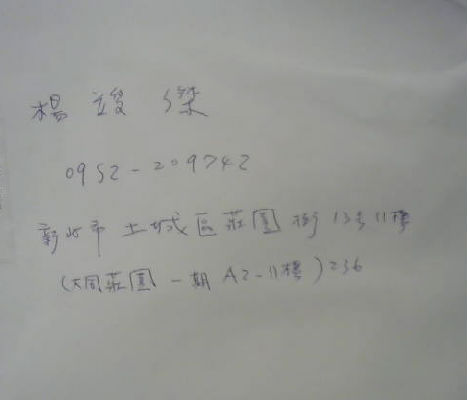 楊竣傑
0952-209742
新北市土城區莊園街13號11樓
(大同莊園一期A2-11樓)236